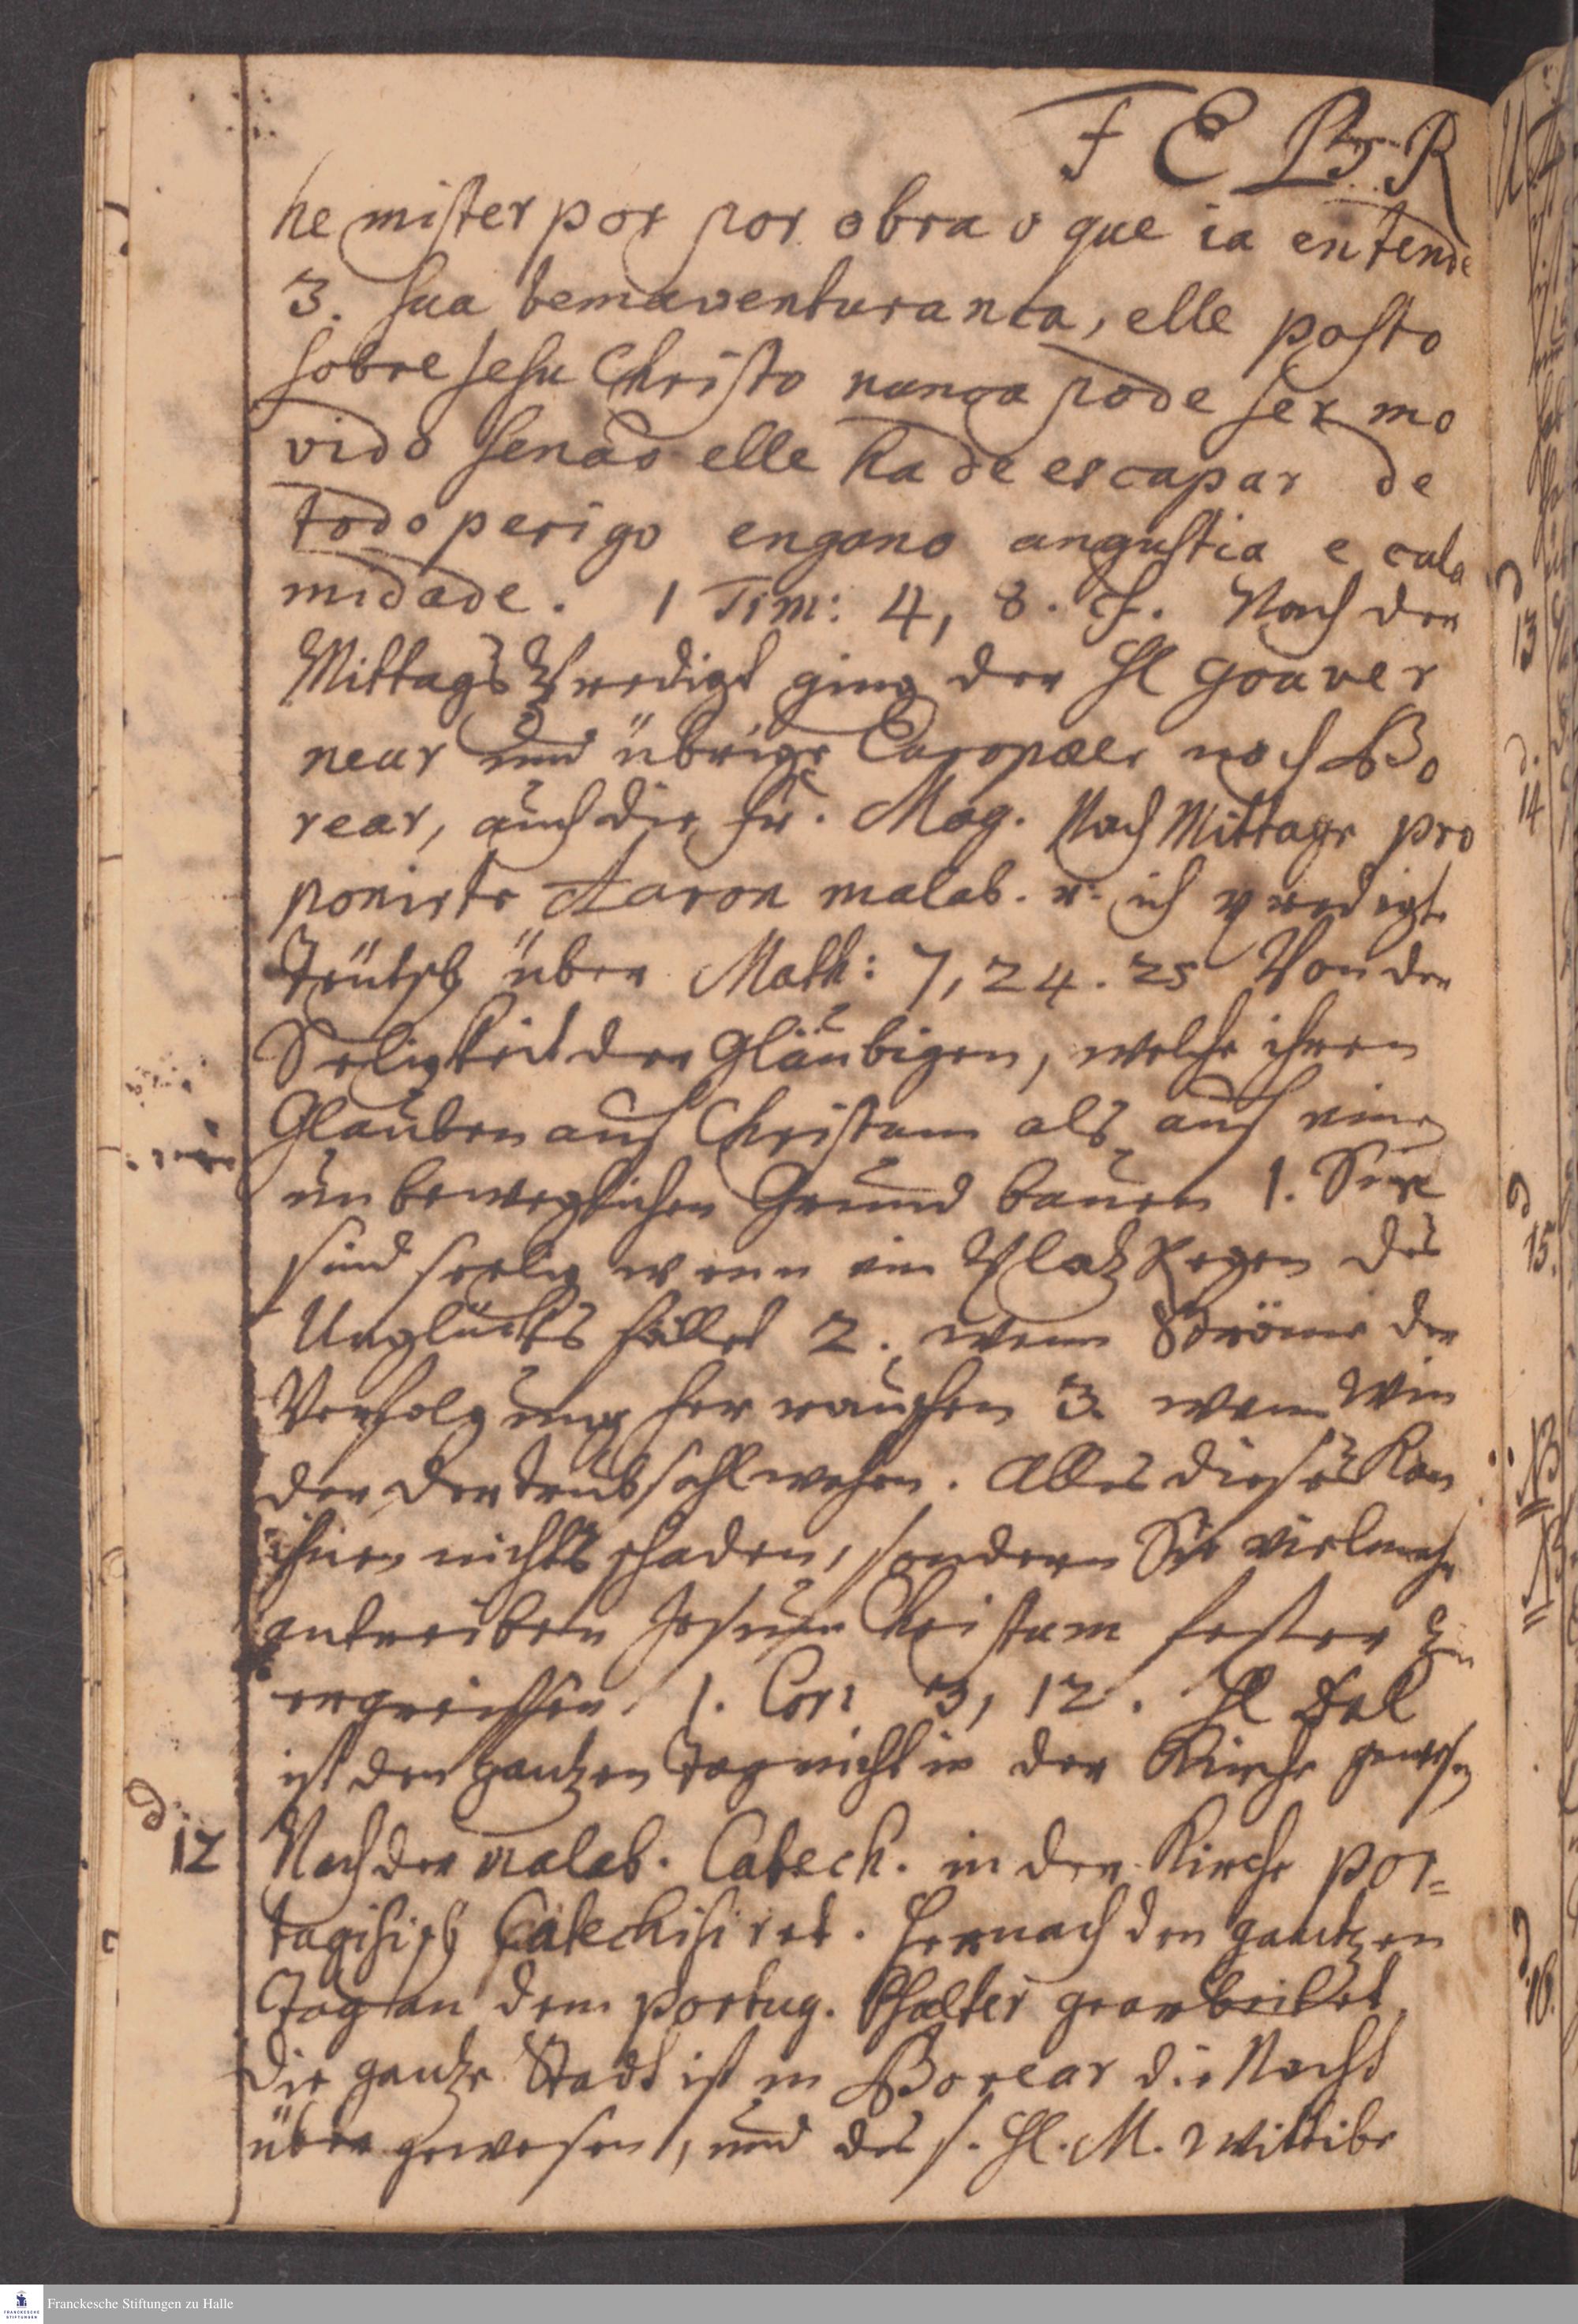 FEBR
he mister por por obra o que ia entende
3. sua bemaventuranca, elle posto
sobre Jesu Christo nunca pode ser mo
vido senão elle ha de escapar de
todo perigo engano angustia e cala
midade. 1 Tim: 4, 8. Nach der
Mittags Predigt ging der Hl Gouver
neur und übrige Europæer nach Po
rear, auch die Fr. Mag. Nach Mittage pro
ponirte Aaron malab. u. ich predigte
Teütsch über Math: 7, 24. 25 Von der
Seligkeit der Gläubigen, welche ihren
Glauben auf Christum als auf einen
unbeweglichen Grund bauen 1. Sie
sind seelig wenn ein Platz Regen des
Unglücks fället 2. wenn Ströme der
Verfolgung her rauschen 3. wenn Win
der der Trübsahl wehen. Alles dieses kan
ihnen nichts schaden, sondern Sie vielmehr
antreiben Jesum Christum fester zu
ergreiffen. 1. Cor: 3, 12. Hl Dal
ist den gantzen Tag nicht in der Kirche gewesen
d. 12 Nach der malab. Catech. in der Kirche por=
tugisisch Catechisiret. Hernach den gantzen
Tag an dem portug. Psalter gearbeitet,
die gantze Stadt ist in Porear die Nacht
über gewesen, und des s. Hl. M. Wittibe
Franckesche Stiftungen zu Halle